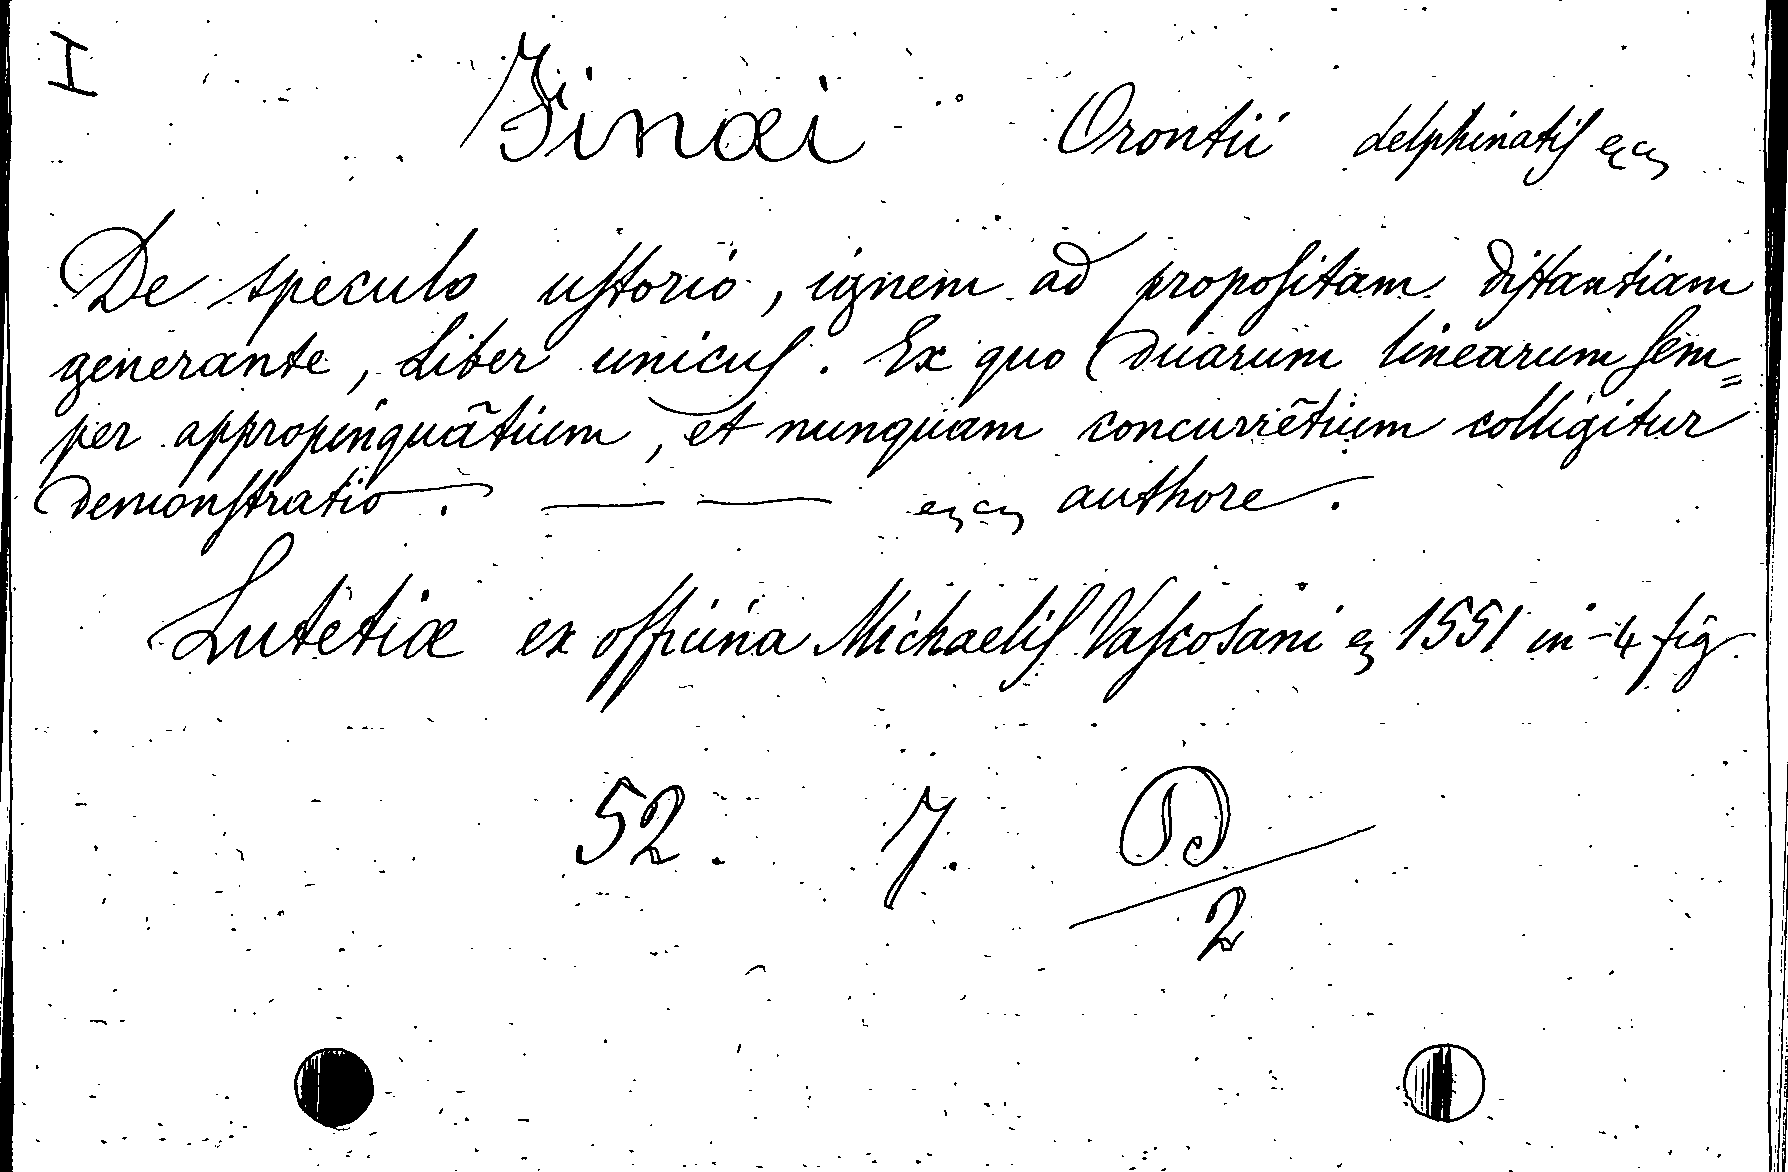 I
Finæi Orontii delphinatiſ
De speculo uſtorio, ignem ad propoſitam diſtantiam
generante, Liber unicuſ. Ex quo duarum linearum ſem=
per appropinquãtium, et nunquam concurrẽtium colligitur
demonſtratio. — — authore.
Lutetiæ ex officina Michaeliſ Vaſcosani 1551 in-4 fig.
52. 7. D
2